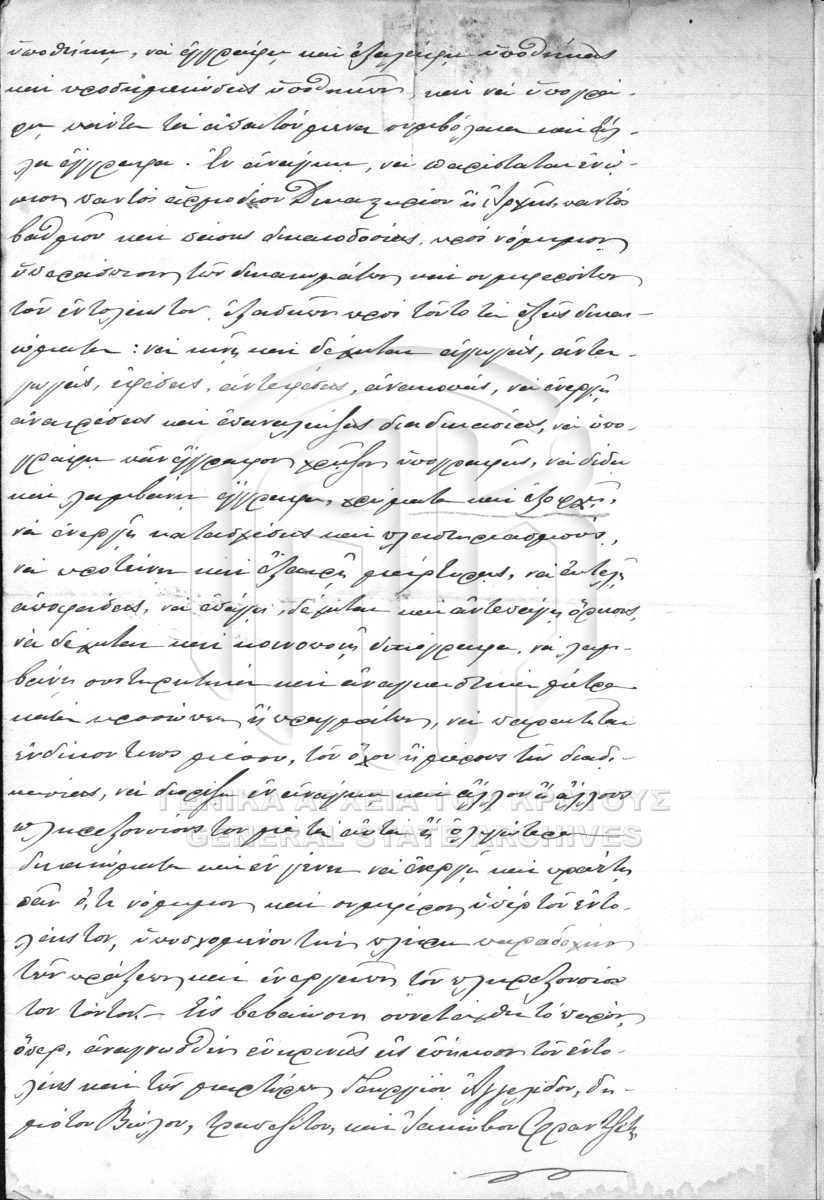 ὑποθήκην, νὰ ἐγγράφῃ καὶ ἐξαλείφῃ ὑποθήκας
καὶ προσημειώσεις ὑποθηκῶν, καὶ νὰ ὑπογρά-
φῃ πάντα τὰ ἀπαιτούμενα συμβόλαια καὶ ἄλ-
λα ἔγγραφα. Ἐν ἀνάγκῃ, νὰ παρίσταται ἐνώ-
πιον παντὸς ἁρμοδίου Δικαστηρίου ἢ Ἀρχῆς, παντὸς
βαθμοῦ καὶ πάσης δικαιοδοσίας, πρὸς νόμιμον
ὑπεράσπισιν τῶν δικαιωμάτων καὶ συμφερόντων
τοῦ ἐντολέως του, ἐξασκῶν πρὸς τοῦτο τὰ ἑξῆς δικαι-
ώματα: νὰ κινῇ καὶ δέχηται ἀγωγάς, ἀντα-
γωγάς, ἐφέσεις, ἀντεφέσεις, ἀνακοπάς, νὰ ἐνεργῇ
ἀναιρέσεις καὶ ἐπαναλήψεις διαδικασίας, νὰ ὑπο-
γράφῃ πᾶν ἔγγραφον χρῇζον ὑπογραφῆς, νὰ δίδῃ
καὶ λαμβάνῃ ἔγγραφα, χρήματα καὶ ἐξοφλῇ,
νὰ ἐνεργῇ κατασχέσεις καὶ πλειστηριασμούς,
νὰ προτείνῃ καὶ ἐξαιρῇ μάρτυρας, νὰ ἐκτελῇ
ἀποφάσεις, νὰ ἐπάγῃ, δέχηται καὶ ἀντεπάγῃ ὅρκους,
νὰ δέχηται καὶ κοινοποιῇ δικόγραφα, νὰ λαμ-
βάνῃ συντηρητικὰ καὶ ἀναγκαστικὰ μέτρα
κατὰ προσώπων ἢ πραγμάτων, νὰ παραιτῆται
ἐνδίκου τινος μέσου, τοῦ ὅλου ἢ μέρους τῆς διαδι-
κασίας, νὰ διορίζῃ ἐν ἀνάγκῃ καὶ ἄλλον ἢ ἄλλους
πληρεξουσίους του μὲ τὰ αὐτὰ ἢ ὀλιγώτερα
δικαιώματα καὶ ἐν γένει νὰ ἐνεργῇ καὶ πράττῃ
πᾶν ὅ,τι νόμιμον καὶ συμφέρον ὑπὲρ τοῦ ἐντο-
λέως του, ὑποσχομένου τὴν πλήρη παραδοχὴν
τῶν πράξεων καὶ ἐνεργειῶν τοῦ πληρεξουσίου
του τούτου. — Εἰς βεβαίωσιν συνετάχθη τὸ παρόν,
ὅπερ, ἀναγνωσθὲν εὐκρινῶς εἰς ἐπήκοον τοῦ ἐντο-
λέως καὶ τῶν μαρτύρων Γεωργίου Ἀγγελίδου, δη-
μότου Βώλου, τραπεζίτου, καὶ Ἰακώβου
ΓΕΝΙΚΑ ΑΡΧΕΙΑ ΤΟΥ ΚΡΑΤΟΥΣ
GENERAL STATE ARCHIVES